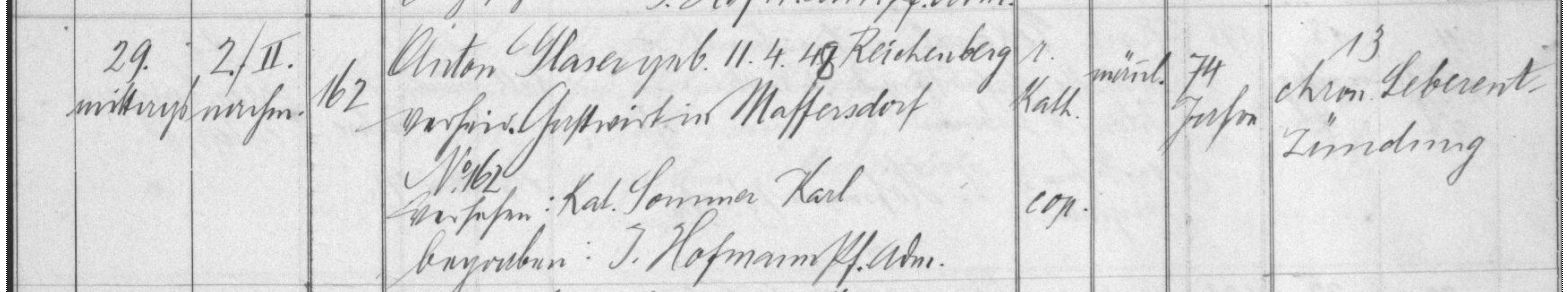 29. 2./II. 162 Anton Glaser geb. 11. 4. 48 Reichenberg r. männl. 74 13
mittags nachm. verheir. Gastwirt in Maffersdorf Kath. Jahre chron. Leberent-
No. 162 zündung
versehen: Kat. Sommer Karl cop.
begraben: J. Hofmann Pf. Adm.